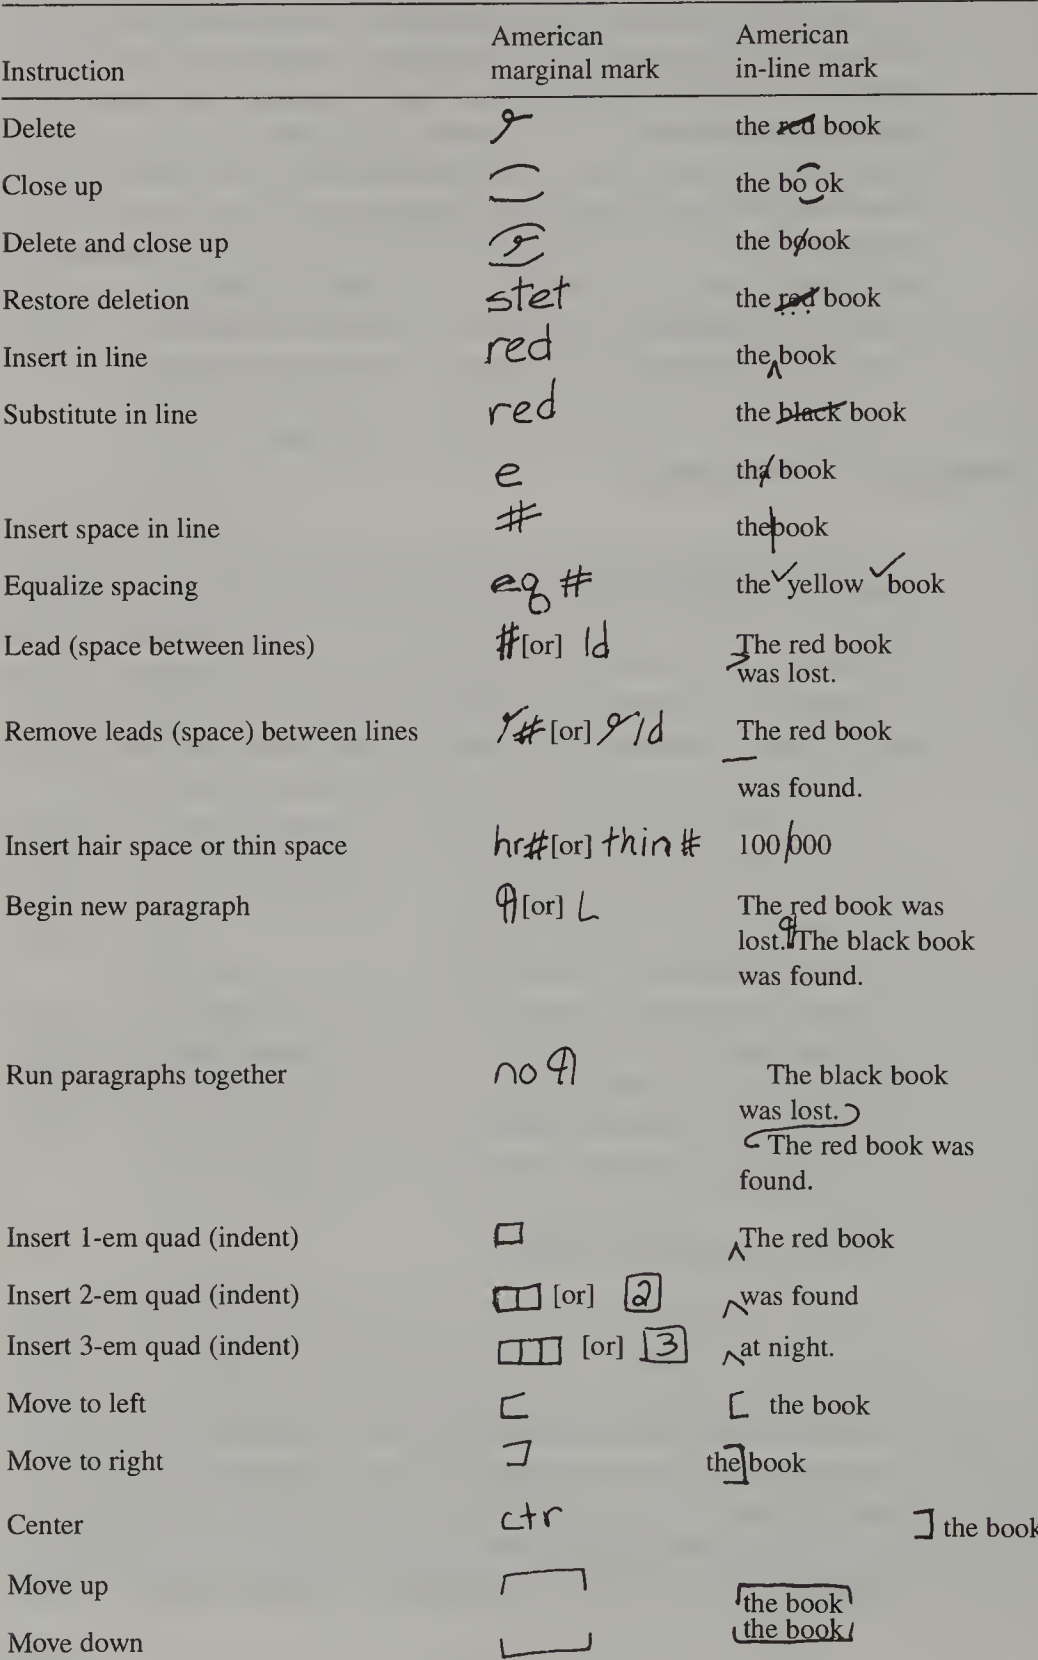 American American
Instruction marginal mark in-line mark
Delete the red book
Close up the bo ok
Delete and close up the boook
Restore deletion stet the red book
Insert in line red the book
Substitute in line red the black book
e tha book
Insert space in line # thebook
Equalize spacing eq # the yellow book
Lead (space between lines) # [or] ld The red book
was lost.
Remove leads (space) between lines # [or] ld The red book
was found.
Insert hair space or thin space hr# [or] thin # 100 000
Begin new paragraph ¶ [or] L The red book was
lost. ¶The black book
was found.
Run paragraphs together no ¶ The black book
was lost.
The red book was
found.
Insert 1-em quad (indent) The red book
Insert 2-em quad (indent) [or] 2 was found
Insert 3-em quad (indent) [or] 3 at night.
Move to left [ [ the book
Move to right ] the]book
Center ctr ] the book
Move up the book
Move down the book